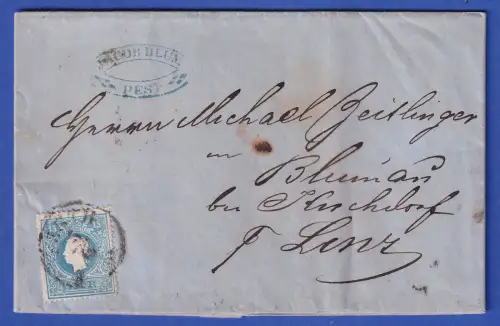 JACOB BLUM
PEST
Herrn Michael Zeitlinger
in
Blumau
bei Kirchdorf
Linz